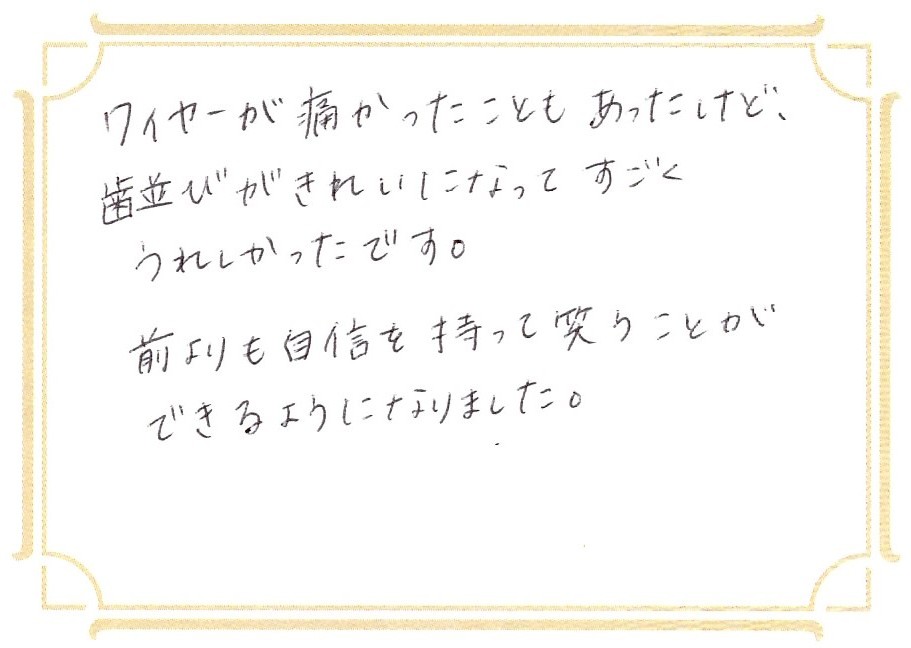 ワイヤーが痛かったことも あったけど、
歯並びがきれいになって すごく
うれしかったです。
前よりも自信を持って笑うことが
できるようになりました。